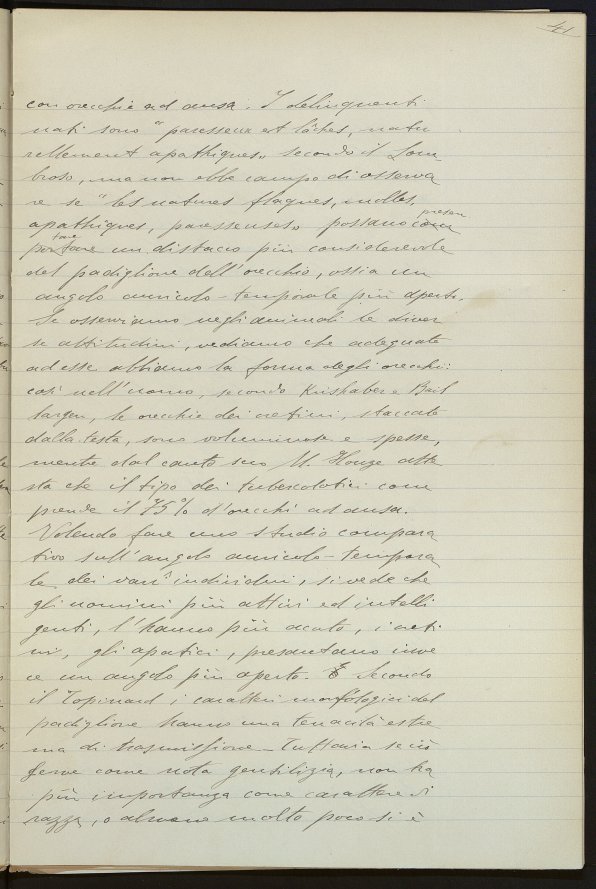 41
con orecchie ad ansa. I delinquenti
nati sono "paresseux et lâches, natu
rellement apathiques" secondo il Lom
broso, ma non ebbe campo di osserva
re se "les natures flasques, molles,
apathiques, paresseuses" possano presen
tare un distacco più considerevole
del padiglione dell'orecchio, ossia un
angolo auricolo-temporale più aperto.
Se osserviamo negli animali le diver
se attitudini, vediamo che adeguate
ad esse abbiamo la forma degli orecchi:
così nell'uomo, secondo Krishaber e Bail
larger, le orecchie dei cretini, staccate
dalla testa, sono voluminose e spesse,
mentre dal canto suo M. Houze atte
sta che il tipo dei tubercolotici com
prende il 75% d'orecchi ad ansa.
Volendo fare uno studio compara
tivo sull'angolo auricolo-tempora
le dei vari individui, si vede che
gli uomini più attivi ed intelli
genti, l'hanno più acuto, i creti
ni, gli apatici, presentano inve
ce un angolo più aperto. Secondo
il Topinard i caratteri morfologici del
padiglione hanno una tenacità estre
ma di trasmissione - Tuttavia se ciò
serve come nota gentilizia, non ha
più importanza come carattere di
razza, o almeno molto poco si è